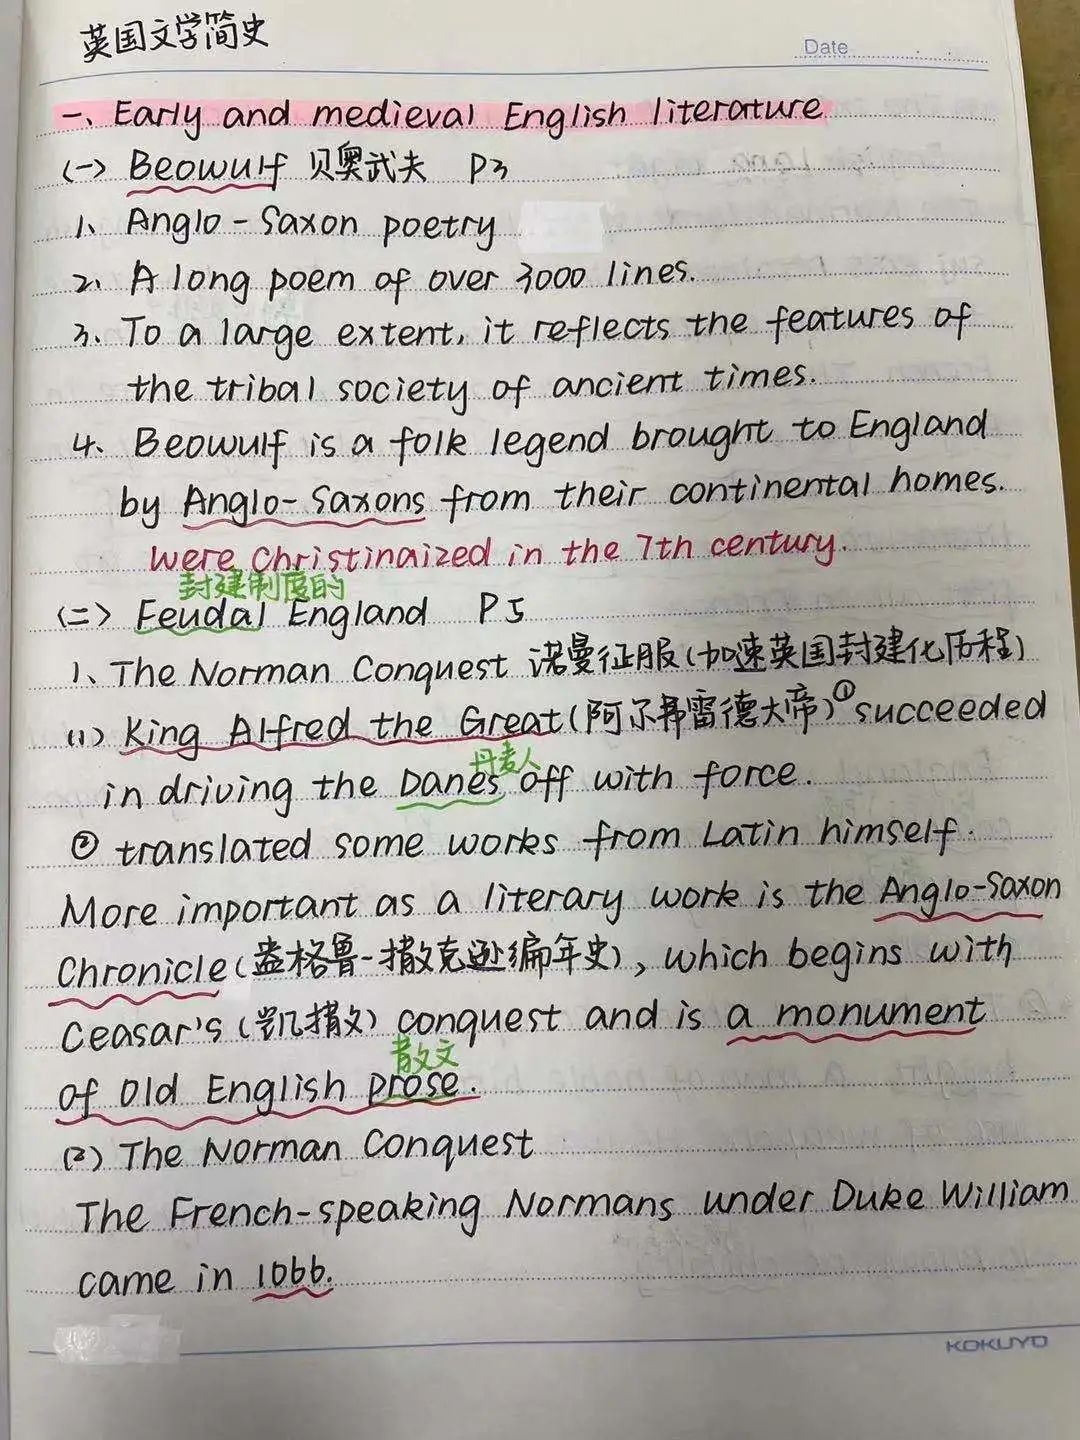 英国文学简史
Date
一、Early and medieval English literature
(一) Beowulf 贝奥武夫 P3
1、Anglo-Saxon poetry
2、A long poem of over 3000 lines.
3、To a large extent, it reflects the features of
the tribal society of ancient times.
4、Beowulf is a folk legend brought to England
by Anglo-Saxons from their continental homes.
were Christinaized in the 7th century.
封建制度的
(二) Feudal England P5
1、The Norman Conquest 诺曼征服(加速英国封建化历程)
(1) King Alfred the Great(阿尔弗雷德大帝)①succeeded
丹麦人
in driving the Danes off with force.
② translated some works from Latin himself.
More important as a literary work is the Anglo-Saxon
Chronicle(盎格鲁-撒克逊编年史), which begins with
Ceasar's (凯撒) conquest and is a monument
散文
of Old English prose.
(2) The Norman Conquest
The French-speaking Normans under Duke William
came in 1066.
KOKUYO